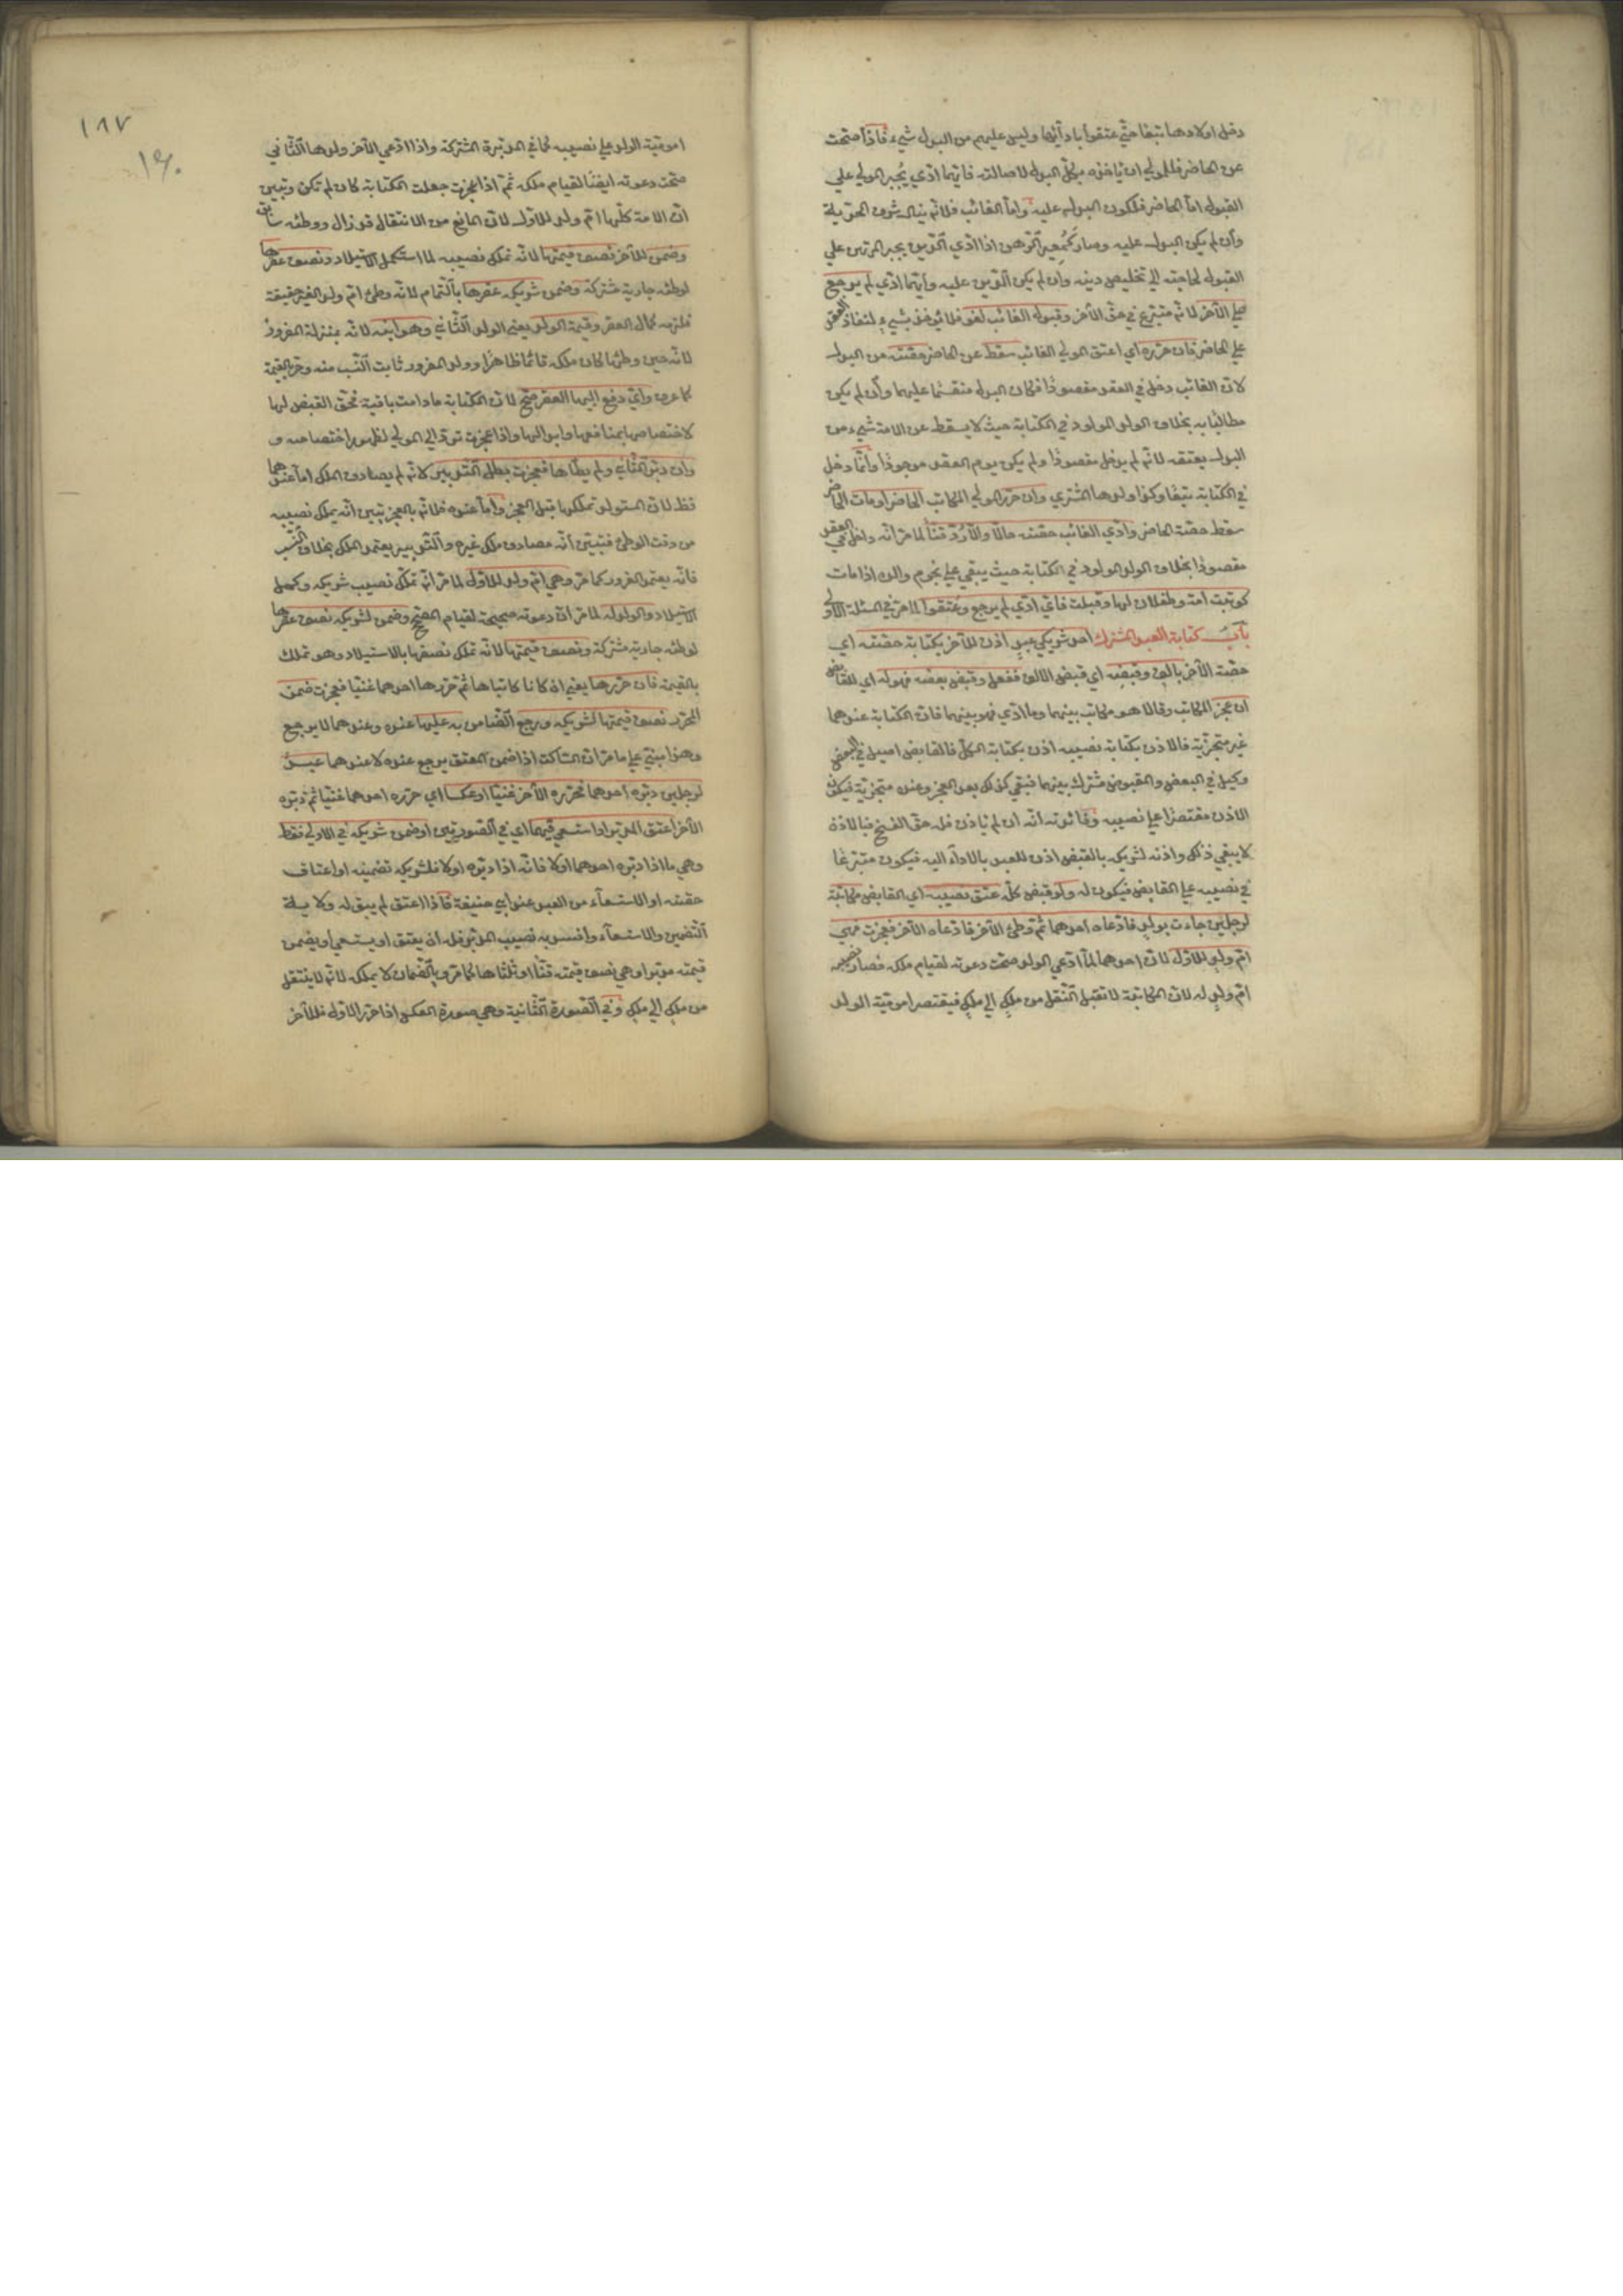 دخل اولادها تبعا حتي عتقوا بادآئها وليس عليهم من البدل شيء فاذا صحت
عن الحاضر فللمولي ان ياخذه بكل البدل لاصالته فايهما ادي يُجبر المولي علي
القبول اما الحاضر فلكون البدل عليه واما الغائب فلانه ينال شرف الحرية
وان لم يكن البدل عليه وصار كمُعير الرهن اذا ادي الدين يجبر المرتهن علي
القبول لحاجته الي تخليص دينه وان لم يكن الدين عليه وايهما ادي لم يرجع
علي الآخر لانه متبرع في حق الآخر وقبول الغائب لغو فلا يؤخذ بشيء لنفاذ العقد
علي الحاضر فان حرره اي اعتق المولي الغائب سقط عن الحاضر حصته من البدل
لان الغائب دخل في العقد مقصودًا فكان البدل منقسما عليهما وان لم يكن
مطالبًا به بخلاف الولد المولود في الكتابة حيث لا يسقط عن الامة شيء من
البدل بعتقه لانه لم يدخل مقصودًا ولم يكن يوم العقد موجودًا وانما دخل
في الكتابة تبعًا وكذا ولدها المشتري وان حرر المولي المكاتب الحاضر او مات الحاضر
سقط حصة الحاضر وادي الغائب حصته حالًا والا رُدّ قنًا لما مر انه داخل في العقد
مقصودًا بخلاف الولد المولود في الكتابة حيث يبقي علي نجوم والده اذا مات
كوتبت امة وطفلان لها وقبلت فاي ادي لم يرجع وعتقوا لما مر في المسئلة الاولي
باب كتابة العبد المشترك احد شريكي عبدٍ اذن للآخر بكتابة حصته اي
حصة الآخر بالف وقبضه اي قبض الالف ففعل وقبض بعضه فهو له اي للقابض
ان عجز المكاتب وقالا هو مكاتب بينهما وما ادي فهو بينهما فان الكتابة عندهما
غير متجزية فالاذن بكتابة نصيبه اذن بكتابة الكل فالقابض اصيل في البعض
وكيل في البعض والمقبوض مشترك بينهما فبقي كذلك بعد العجز وعنده متجزية فيكون
الاذن مقتصرًا علي نصيبه وفائدته انه ان لم ياذن فله حق الفسخ فبالاذن
لا يبقي ذلك واذنه لشريكه بالقبض اذن للعبد بالادآء اليه فيكون متبرعًا
في نصيبه علي القابض فيكون له ولو قبض كله عتق نصيبه اي القابض مكاتبة
لرجلين جاءت بولدٍ فادعاه احدهما ثم وطئ الآخر فادعاه الآخر فعجزت فهي
ام ولدٍ للاول لان احدهما لما ادعي الولد صحت دعوته لقيام ملكه فصار نصيبه
ام ولدٍ له لان المكاتبة لا تقبل النقل من ملكٍ الي ملكٍ فيقتصر امومية الولد
١٨٧
امومية الولد علي نصيبه كما في المدبرة المشتركة واذا ادعي الآخر ولدها الثاني
صحت دعوته ايضًا لقيام ملكه ثم اذا عجزت جعلت الكتابة كان لم تكن وتبين
ان الامة كلها ام ولد للاول لان المانع من الانتقال قد زال ووطئه سابق
وضمن للآخر نصف قيمتها لانه تملك نصيبه لما استكمل الاستيلاد ونصف عقرها
لوطئه جارية مشتركة وضمن شريكه عقرها بالتمام لانه وطئ ام ولد الغير حقيقة
فلزمه كمال العقر وقيمة الولد يعني الولد الثاني وهو ابنه لانه بمنزلة المغرور
لانه حين وطئها كان ملكه قائما ظاهرًا وولد المغرور ثابت النسب منه وحر بالقيمة
كما عرف واي دفع اليها العقر صح لان الكتابة ما دامت باقية فحق القبض لها
لاختصاصها بمنافعها وابدالها واذا عجزت ترد الي المولي لظهور اختصاصه و
وان دبر الثاني ولم يطأها فعجزت بطل التدبير لانه لم يصادف الملك اما عندهما
فظ لان المستولد تملكها قبل العجز واما عنده فلانه بالعجز تبين انه يملك نصيبه
من وقت الوطئ فتبين انه مصادف ملك غيره والتدبير يعتمد الملك بخلاف النسب
فانه يعتمد الغرور كما مر وهي ام ولد للاول لما مر انه تملك نصيب شريكه وكمل
الاستيلاد والولد له لما مر ان دعوته صحيحة لقيام المصحح وضمن لشريكه نصف عقرها
لوطئه جارية مشتركة ونصف قيمتها لانه تملك نصفها بالاستيلاد وهو تملك
بالقيمة فان حررها يعني ان كانا كاتباها ثم حررها احدهما غنيا فعجزت ضمن
المحرر نصف قيمتها لشريكه ورجع الضامن به عليها عنده وعندهما لا يرجع
وهذا مبني علي ما مر ان الساكت اذا ضمن المعتق يرجع عنده لا عندهما عبدٌ
لرجلين دبره احدهما فحرره الآخر غنيا او عكسا اي حرره احدهما غنيا ثم دبره
الآخر اعتق المدبر او استسعي فيهما اي في الصورتين او ضمن شريكه في الاولي فقط
وهي ما اذا دبره احدهما اولا فانه اذا دبره اولا فلشريكه تضمينه او اعتاق
حصته او الاستسعآء من العبد عند ابي حنيفة فاذا اعتق لم يبق له ولاية
التضمين والاستسعآء وافسد به نصيب المدبر فله ان يعتق او يستسعي او يضمن
قيمته مدبرا وهي نصف قيمته قنًا او ثلثاها كما مر وبالضمان لا يملكه لانه لا ينتقل
من ملكٍ الي ملكٍ وفي الصورة الثانية وهي صورة العكس اذا حرر الاول فللآخر